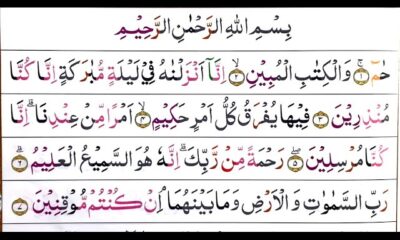 بِسْمِ اللهِ الرَّحْمٰنِ الرَّحِيْمِ
حٰمٓ ۝١ وَالْكِتٰبِ الْمُبِيْنِ ۝٢ اِنَّاۤ اَنْزَلْنٰهُ فِيْ لَيْلَةٍ مُّبٰرَكَةٍ اِنَّا كُنَّا
مُنْذِرِيْنَ ۝٣ فِيْهَا يُفْرَقُ كُلُّ اَمْرٍ حَكِيْمٍ ۝٤ اَمْرًا مِّنْ عِنْدِنَا ؕ اِنَّا
كُنَّا مُرْسِلِيْنَ ۝٥ رَحْمَةً مِّنْ رَّبِّكَ ؕ اِنَّهٗ هُوَ السَّمِيْعُ الْعَلِيْمُ ۝٦
رَبِّ السَّمٰوٰتِ وَالْاَرْضِ وَمَا بَيْنَهُمَا ۘ اِنْ كُنْتُمْ مُّوْقِنِيْنَ ۝٧